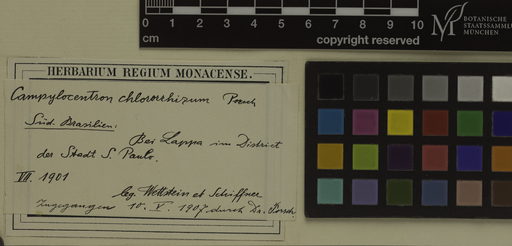 0 1 2 3 4 5 6 7 8 9 10
cm
copyright reserved
BOTANISCHE
STAATSSAMMLUNG
MÜNCHEN
HERBARIUM REGIUM MONACENSE.
Campylocentron chlororhizum Porsch
Süd-Brasilien:
Bei Lappa im District
der Stadt S. Paulo.
VII. 1901
leg. Wettstein et Schiffner
Zugegangen 10. V. 1907 durch Dr. Porsch